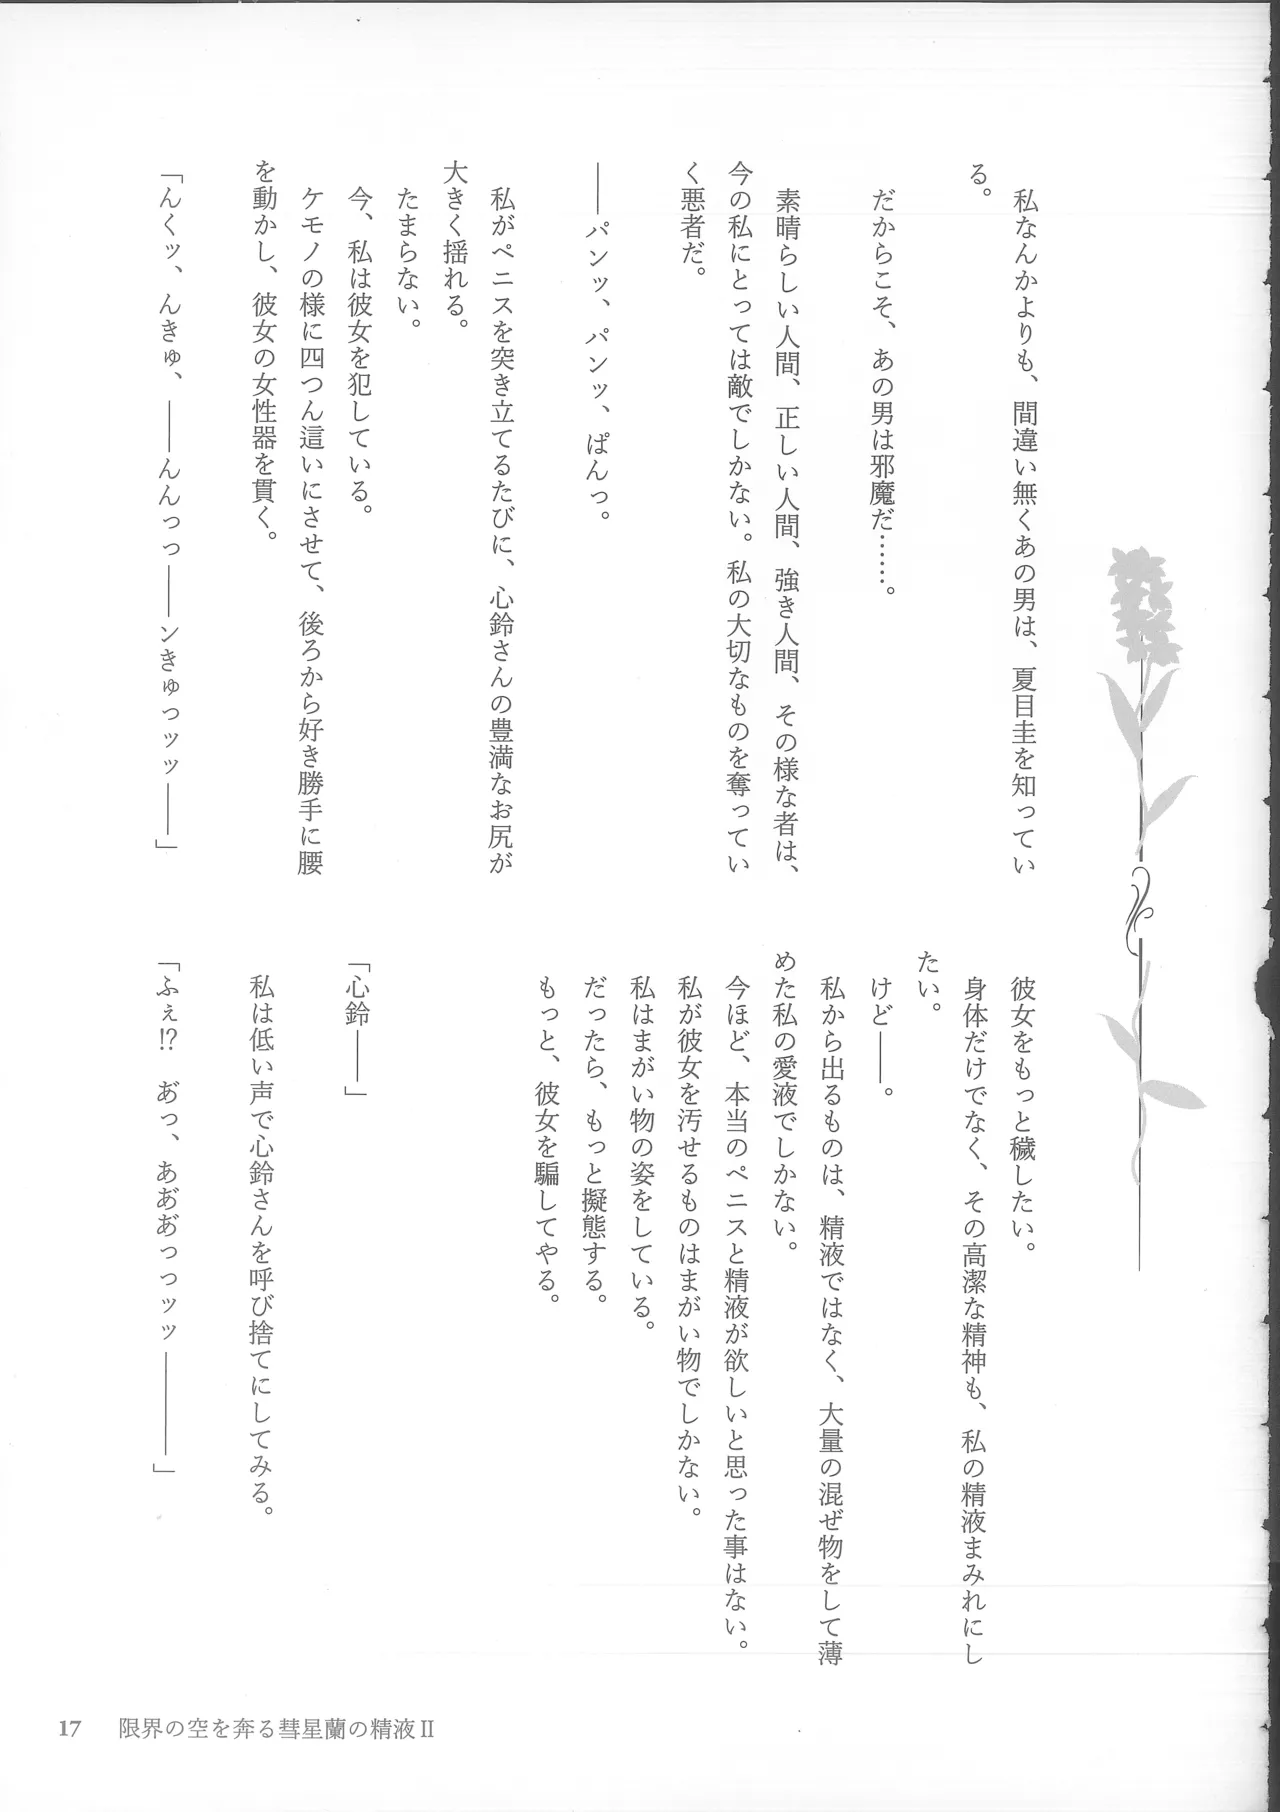 私なんかよりも、間違い無くあの男は、夏目圭を知ってい
る。
だからこそ、あの男は邪魔だ……。
素晴らしい人間、正しい人間、強き人間、その様な者は、
今の私にとっては敵でしかない。私の大切なものを奪ってい
く悪者だ。
――パンッ、パンッ、ぱんっ。
私がペニスを突き立てるたびに、心鈴さんの豊満なお尻が
大きく揺れる。
たまらない。
今、私は彼女を犯している。
ケモノの様に四つん這いにさせて、後ろから好き勝手に腰
を動かし、彼女の女性器を貫く。
「んくッ、んきゅ、――んんっっ――ンきゅっッッ――」
彼女をもっと穢したい。
身体だけでなく、その高潔な精神も、私の精液まみれにし
たい。
けど――。
私から出るものは、精液ではなく、大量の混ぜ物をして薄
めた私の愛液でしかない。
今ほど、本当のペニスと精液が欲しいと思った事はない。
私が彼女を汚せるものはまがい物でしかない。
私はまがい物の姿をしている。
だったら、もっと擬態する。
もっと、彼女を騙してやる。
「心鈴――」
私は低い声で心鈴さんを呼び捨てにしてみる。
「ふぇ!? あ゙っ、あ゙あ゙っっッッ――――」
17 限界の空を奔る彗星蘭の精液Ⅱ